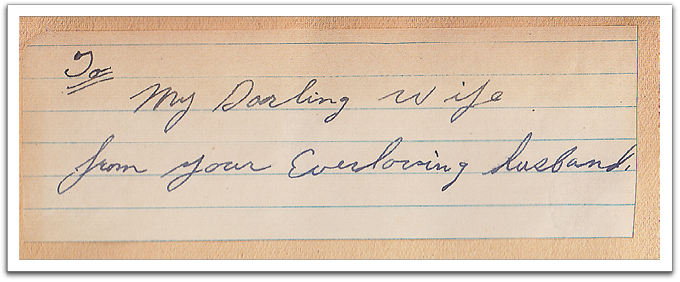 To
My Darling Wife
from your Everloving husband.